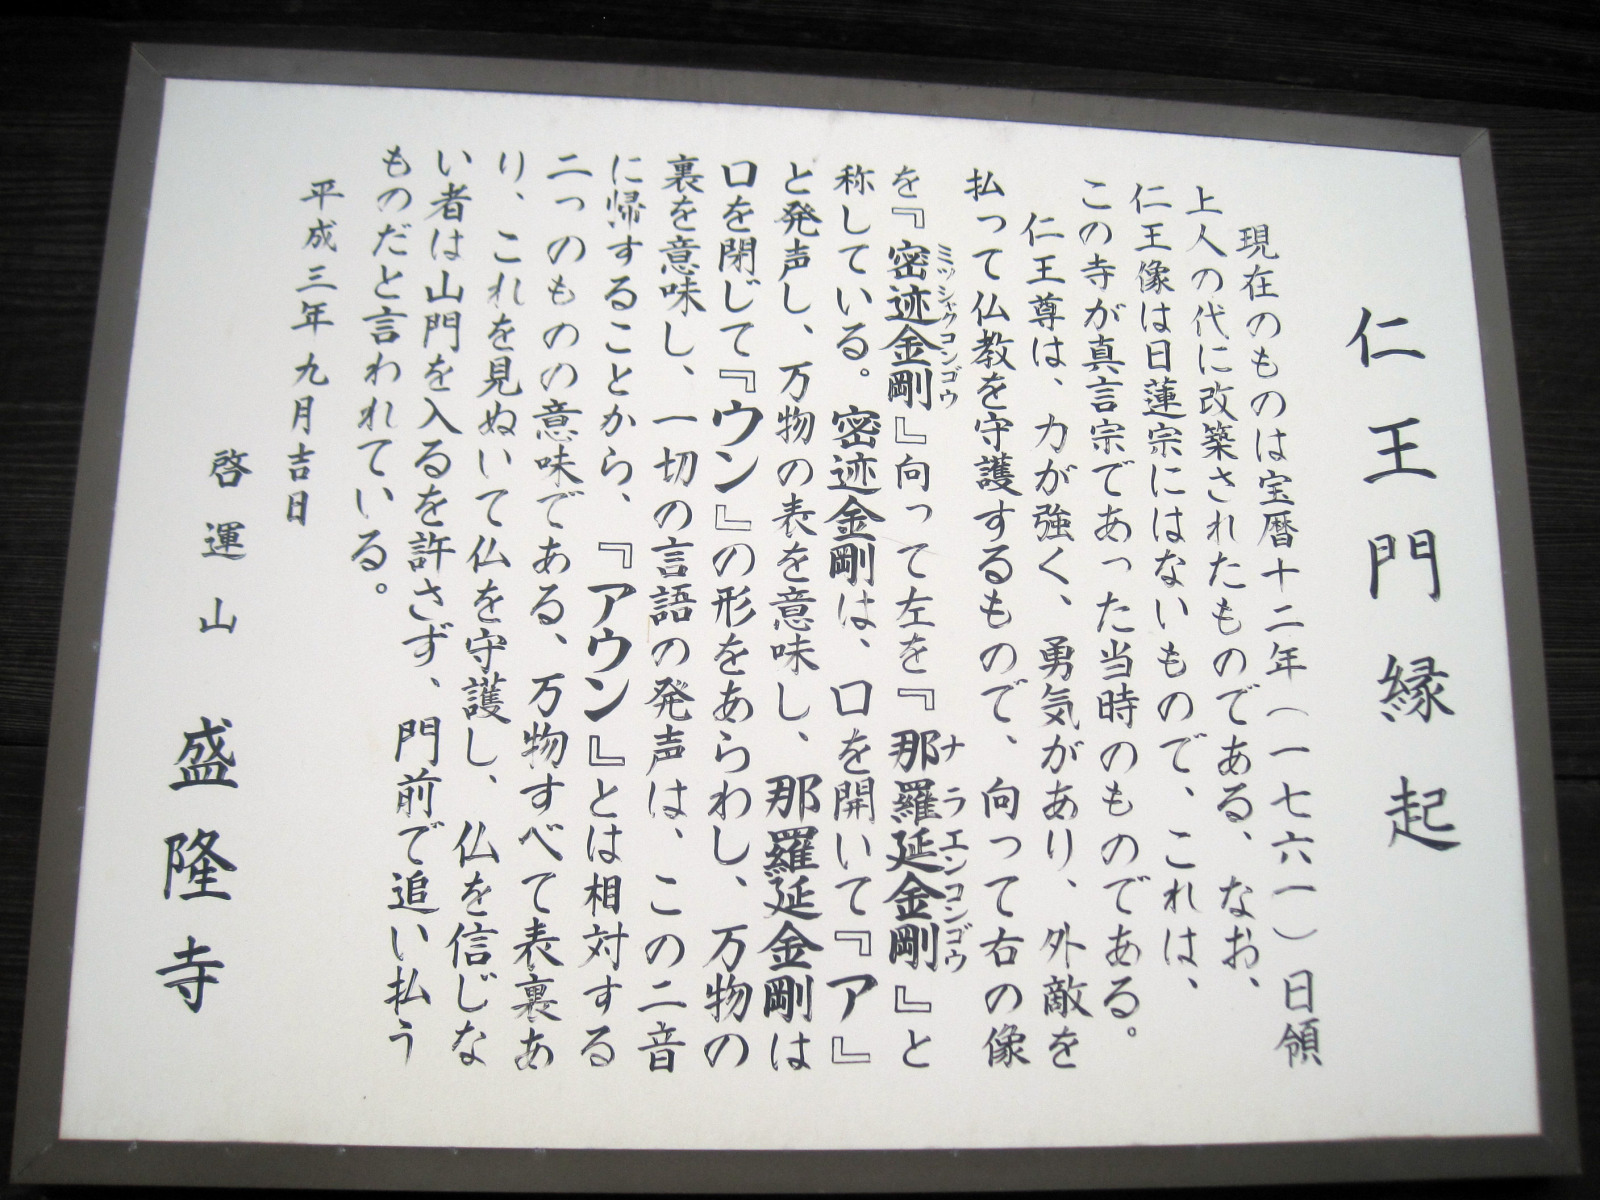 仁王門縁起
現在のものは宝暦十二年（一七六一）日領
上人の代に改築されたものである、なお、
仁王像は日蓮宗にはないもので、これは、
この寺が真言宗であった当時のものである。
仁王尊は、力が強く、勇気があり、外敵を
払って仏教を守護するもので、向って右の像
を『密迹金剛』向って左を『那羅延金剛』と
ミッシャクコンゴウ ナラエンコンゴウ
称している。密迹金剛は、口を開いて『ア』
と発声し、万物の表を意味し、那羅延金剛は
口を閉じて『ウン』の形をあらわし、万物の
裏を意味し、一切の言語の発声は、この二音
に帰することから、『アウン』とは相対する
二つのものの意味である、万物すべて表裏あ
り、これを見ぬいて仏を守護し、仏を信じな
い者は山門を入るを許さず、門前で追い払う
ものだと言われている。
平成三年九月吉日
啓運山 盛隆寺